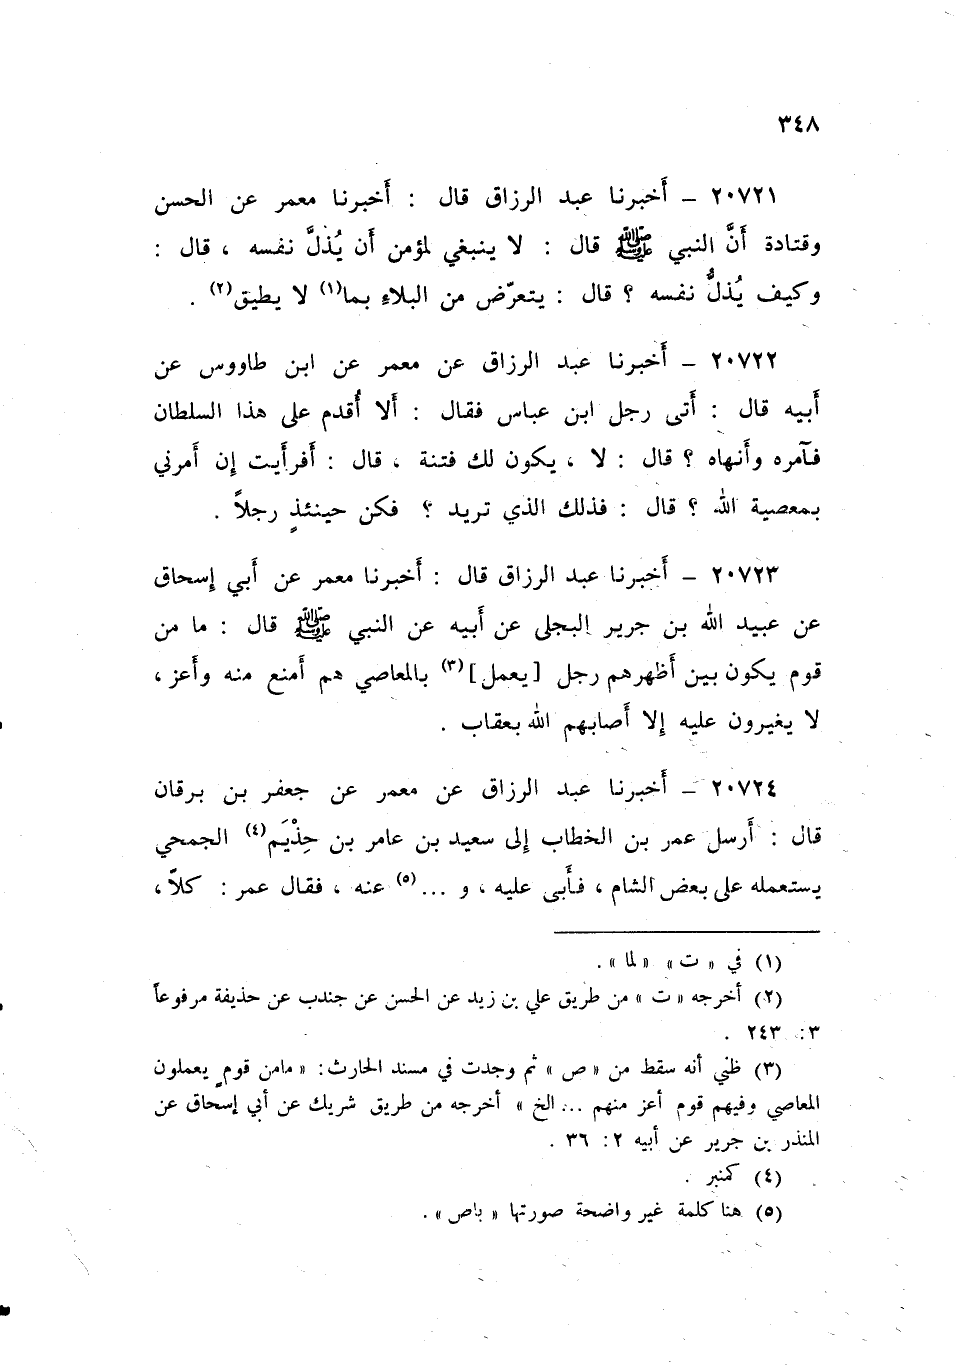 ٣٤٨
٢٠٧٢١ ـ أَخبرنا عبد الرزاق قال : أَخبرنا معمر عن الحسن
وقتادة أَنَّ النبي ﷺ قال : لا ينبغي لمؤمن أَن يُذلَّ نفسه ، قال :
وكيف يُذلُّ نفسه ؟ قال : يتعرّض من البلاءِ بما(١) لا يطيق(٢) .
٢٠٧٢٢ ـ أَخبرنا عبد الرزاق عن معمر عن ابن طاووس عن
أَبيه قال : أَتى رجل ابن عباس فقال : أَلا أُقدم على هذا السلطان
فآمره وأَنهاه ؟ قال : لا ، يكون لك فتنة ، قال : أَفرأَيت إِن أَمرني
بمعصية الله ؟ قال : فذلك الذي تريد ؟ فكن حينئذٍ رجلاً .
٢٠٧٢٣ ـ أَخبرنا عبد الرزاق قال : أَخبرنا معمر عن أَبي إِسحاق
عن عبيد الله بن جرير البجلي عن أَبيه عن النبي ﷺ قال : ما من
قوم يكون بين أَظهرهم رجل [يعمل](٣) بالمعاصي هم أَمنع منه وأَعز ،
لا يغيرون عليه إِلا أَصابهم الله بعقاب .
٢٠٧٢٤ ـ أَخبرنا عبد الرزاق عن معمر عن جعفر بن برقان
قال : أَرسل عمر بن الخطاب إِلى سعيد بن عامر بن حِذْيَم(٤) الجمحي
يستعمله على بعض الشام ، فأَبى عليه ، و ...(٥) عنه ، فقال عمر : كلاّ ،
(١) في « ت » « لما » .
(٢) أخرجه « ت » من طريق علي بن زيد عن الحسن عن جندب عن حذيفة مرفوعاً
٣: ٢٤٣ .
(٣) ظني أنه سقط من « ص » ثم وجدت في مسند الحارث: « مامن قوم يعملون
المعاصي وفيهم قوم أعز منهم ... الخ » أخرجه من طريق شريك عن أبي إسحاق عن
المنذر بن جرير عن أبيه ٢: ٣٦ .
(٤) كمنبر .
(٥) هنا كلمة غير واضحة صورتها « باص » .